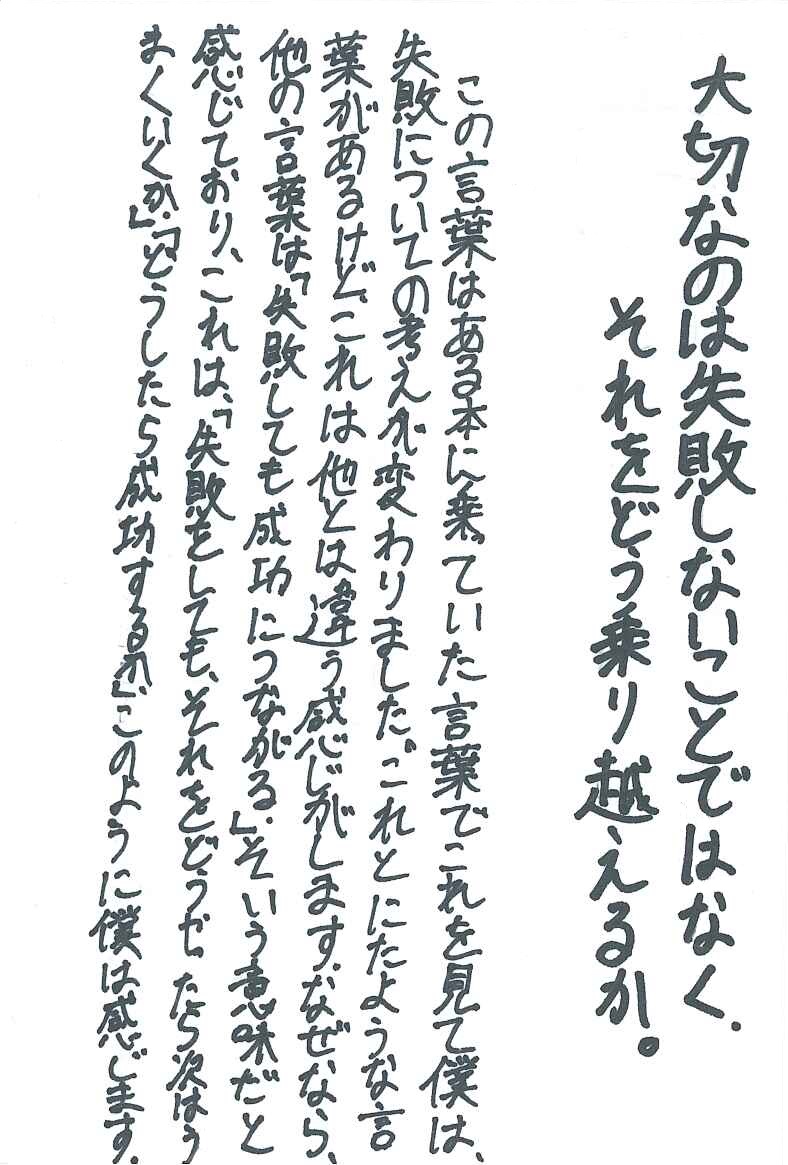 大切なのは失敗しないことではなく、
それをどう乗り越えるか。
この言葉はある本に乗っていた言葉でこれを見て僕は、
失敗についての考えが変わりました。これとにたような言
葉があるけど、これは他とは違う感じがします。なぜなら、
他の言葉は「失敗しても成功につながる。」そいう意味だと
感じており、これは、「失敗をしても、それをどうせったら次はう
まくいくか。」「どうしたら成功するか」このように僕は感じます。